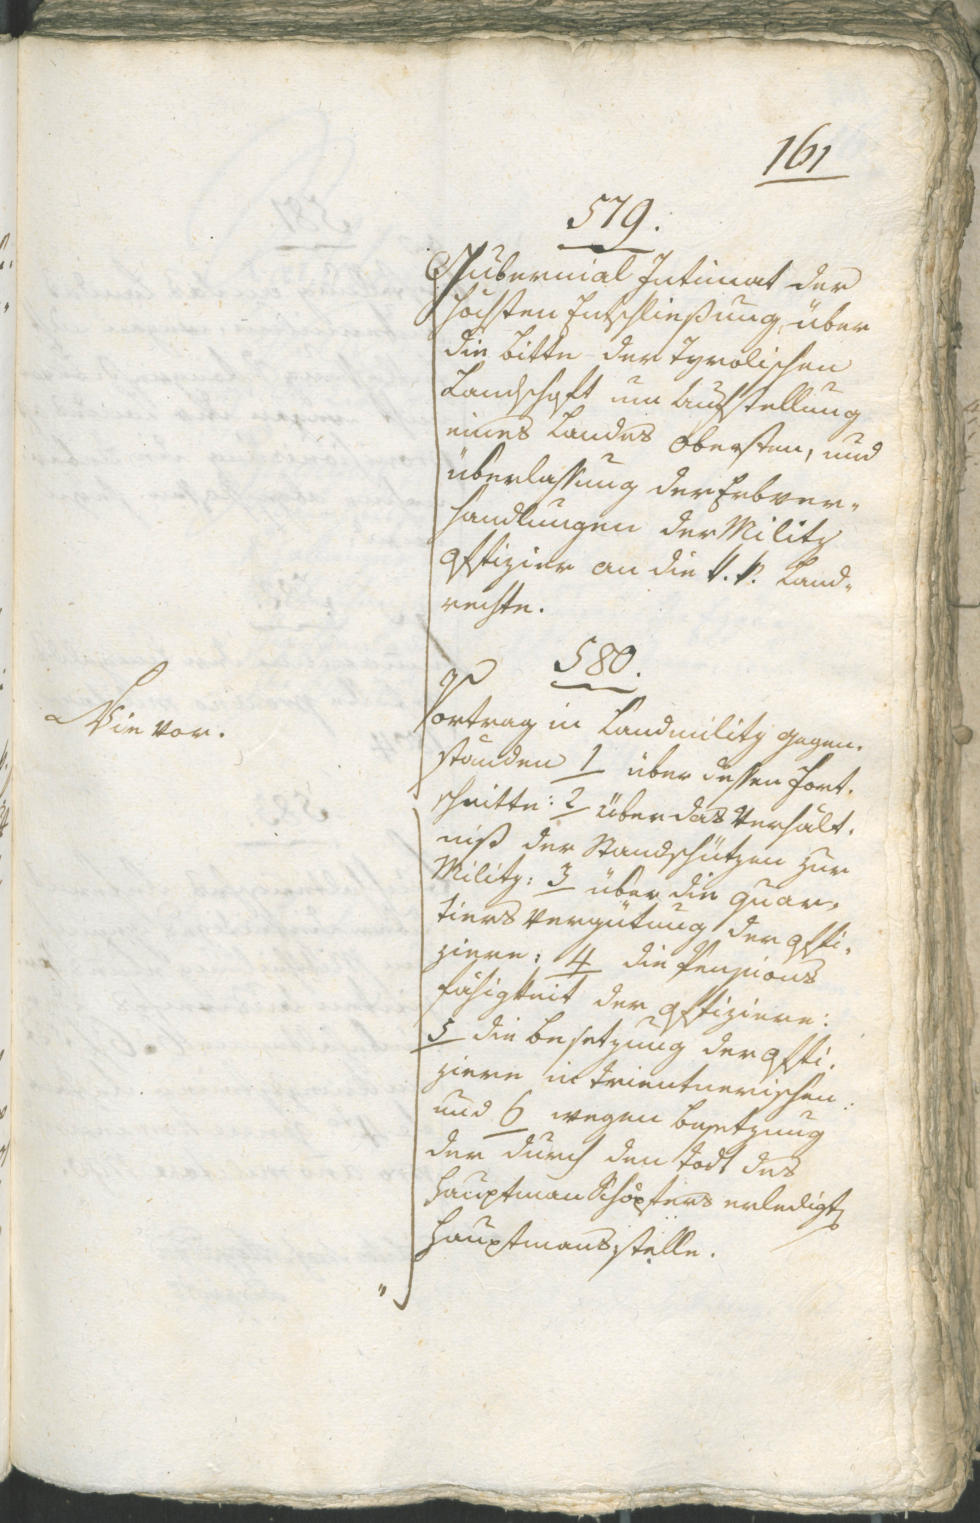 161
579.
Gubernial Intimat der
höchsten Entschließung über
die bitte der Tyrolischen
Landschaft um Aufstellung
eines Landes obersten, und
überlassung der Erbver-
handlungen der Militz
offizier an die k. k. Land-
rechte.
580.
Vortrag in Landmilitz gegen-
standen 1 über dessen Fort-
schritte: 2 über das Verhält-
niß der Standschützen zur
Militz: 3 über die quar-
tiers Vergütung der offi-
ziere: 4 die Pensions
fähigkeit der offiziere:
5 die besetzung der offi-
ziere in trientnerischen:
und 6 wegen besetzung
der durch den todt des
Hauptman Schöpfers erledigt
Hauptmansstelle.
Wie vor.